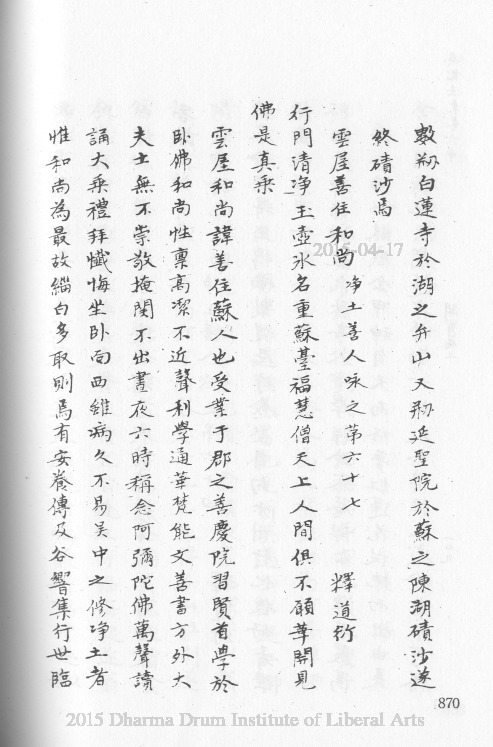 敷剏白蓮寺於湖之弁山又剏延聖院於蘇之陳湖磧沙遂
終磧沙焉
雲屋善住和尚 淨土善人咏之第六十七 釋道衍
行門清淨玉壺氷名重蘇臺福慧僧天上人間俱不願華開見
佛是真乘
雲屋和尚諱善住蘇人也受業于郡之善慶院習賢首學於
臥佛和尚性稟高潔不近聲利學通華梵能文善書方外大
夫士無不崇敬掩関不出晝夜六時稱念阿彌陀佛萬聲讀
誦大乘禮拜懺悔坐臥向西雖病久不易吴中之修淨土者
惟和尚為最故緇白多取則焉有安養傳及谷響集行世臨
870
2015-04-17
2015 Dharma Drum Institute of Liberal Arts